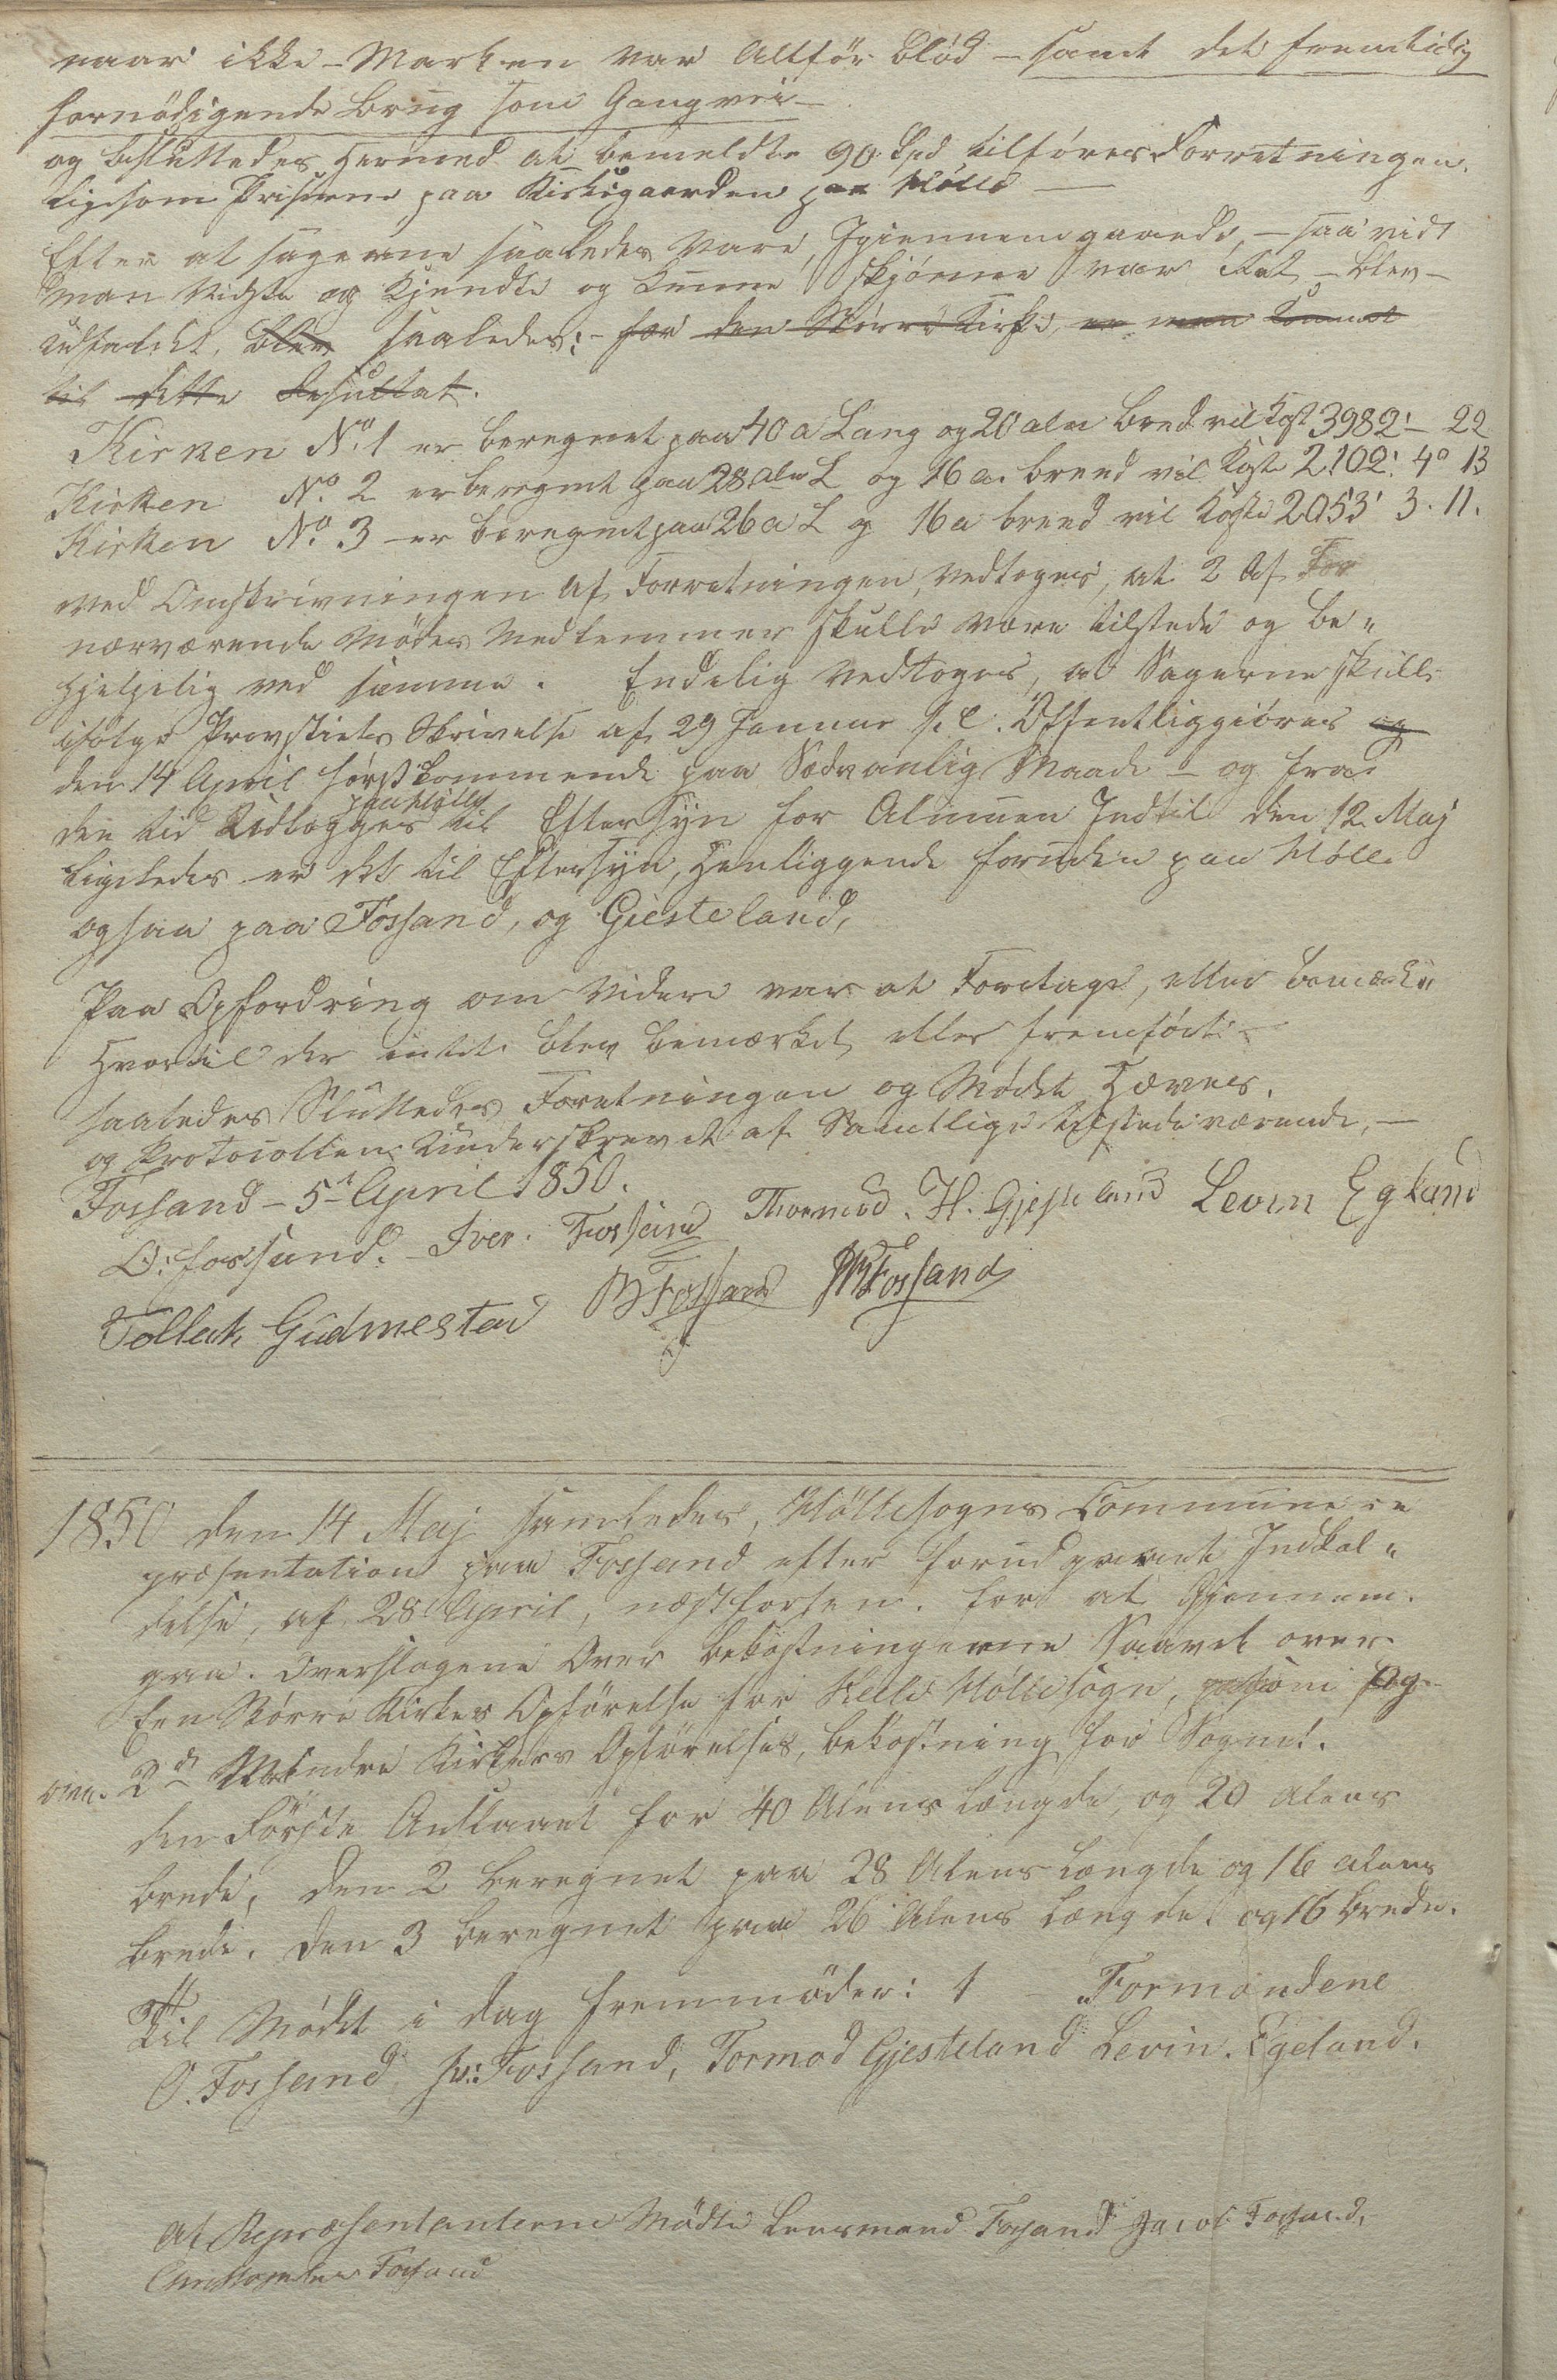 naar ikke - Marken var altfor blød - samt det fremtidig
fornødigende Brug som Gangvei -
og besluttedes hermed at bemeldte 90 Spd tilføres Forretningen.
ligesom Priserne paa Kirkegaarden paa Hølle —
Efter at sagerne saaledes vare, Igiennemgaaede, - saa vidt
man vidste og kjendte og kunne skjønne var Ret - blev -
udfaldet, blev saaledes: - for den Større Kirke, er man kommet
til dette Resultat.
Kirken No 1 er beregnet paa 40 a Lang og 20 alen Bred vil kost 3982: - 22
Kirken No. 2 er beregnet paa 28 aln L og 16 a. breed vil koste 2102: 4o 13
Kirken No. 3 - er beregnet paa 26 a L og 16 a breed vil koste 2053: 3. 11.
ved Omskrivningen af Forretningen, vedtoges, at 2 af For
nærværende Mødes Medlemmer skulle være tilstede og be„
hjelpelig ved samme. Endelig vedtoges, at Sagerne skulle
ifølge Provstiets Skrivelse af 29 Januar d. A. Offentliggiøres og
den 14 April førstkommende paa Sedvanlig Maade - og fra
paa Hølle
den tid Udlægges til Eftersyn for Almuen Indtil den 12. Maj
Ligeledes er det til Eftersyn, henliggende foruden paa Hølle
ogsaa paa Fossand, og Giesteland,
Paa Opfordring om videre var at Foretage, eller bemærke
hvortil der intet blev bemærket eller fremført -
saaledes Sluttedes Forretningen og Mødet hæves.
og Protocollen Underskrevet af Samtlige tilstedeværende, —
Fossand - 5t April 1850.
O: Fossand. - Iver. Fossand Thormod. H. Gjesteland Levin Egland
Tollak Gudmestad Fossand Fossand
1850 den 14 Maj samledes, Hølle sogns Commune re
præsentation paa Fossand efter forudgaaet Indkal„
delse, af 28 April, næstforhen. for at Gjennem.
gaa. Overslagene Over bekostningerne Saavel over
Een Større Kirkes Opførelse for Hele Hølle sogn, som og
over. 2de Mindre Kirkers Opførelses, bekostning for Sognet.
den Første Anslaaet for 40 Alens længde, og 20 alens
brede, den 2 beregnet paa 28 Alens længde og 16 alens
brede. den 3 beregnet paa 26 Alens længde og 16 brede.
Til Mødet i dag fremmøder: 1 - Formændene
O. Fossand Iv: Fossand, Tormod Gjesteland Levin. Egeland.
Af Repræsentanterne Mødte Lensmand Fossand Jacob Fossand.
Christopher Fossand